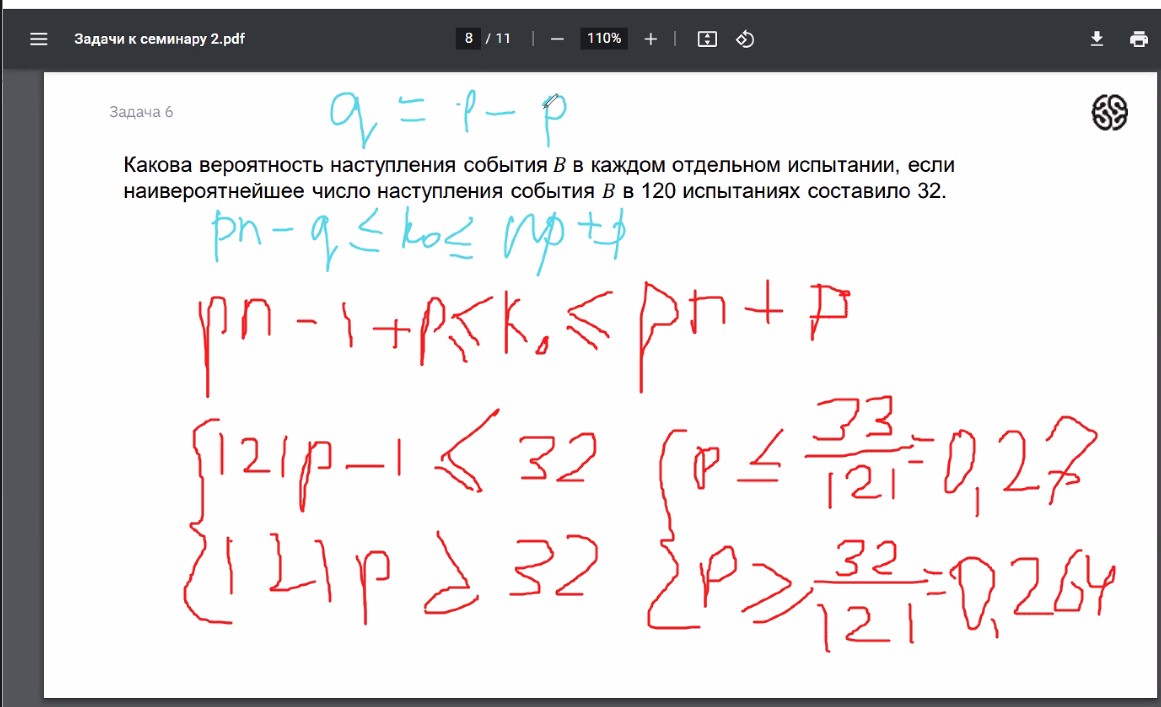 Задачи к семинару 2.pdf 8 / 11 110%
Задача 6
q = 1 - p
Какова вероятность наступления события B в каждом отдельном испытании, если
наивероятнейшее число наступления события B в 120 испытаниях составило 32.
pn - q ≤ k₀ ≤ np + p
pn - 1 + p ≤ k₀ ≤ pn + p
{ 121p - 1 ≤ 32 { p ≤ 33/121 = 0,27
{ 121p ≥ 32 { p ≥ 32/121 = 0,264